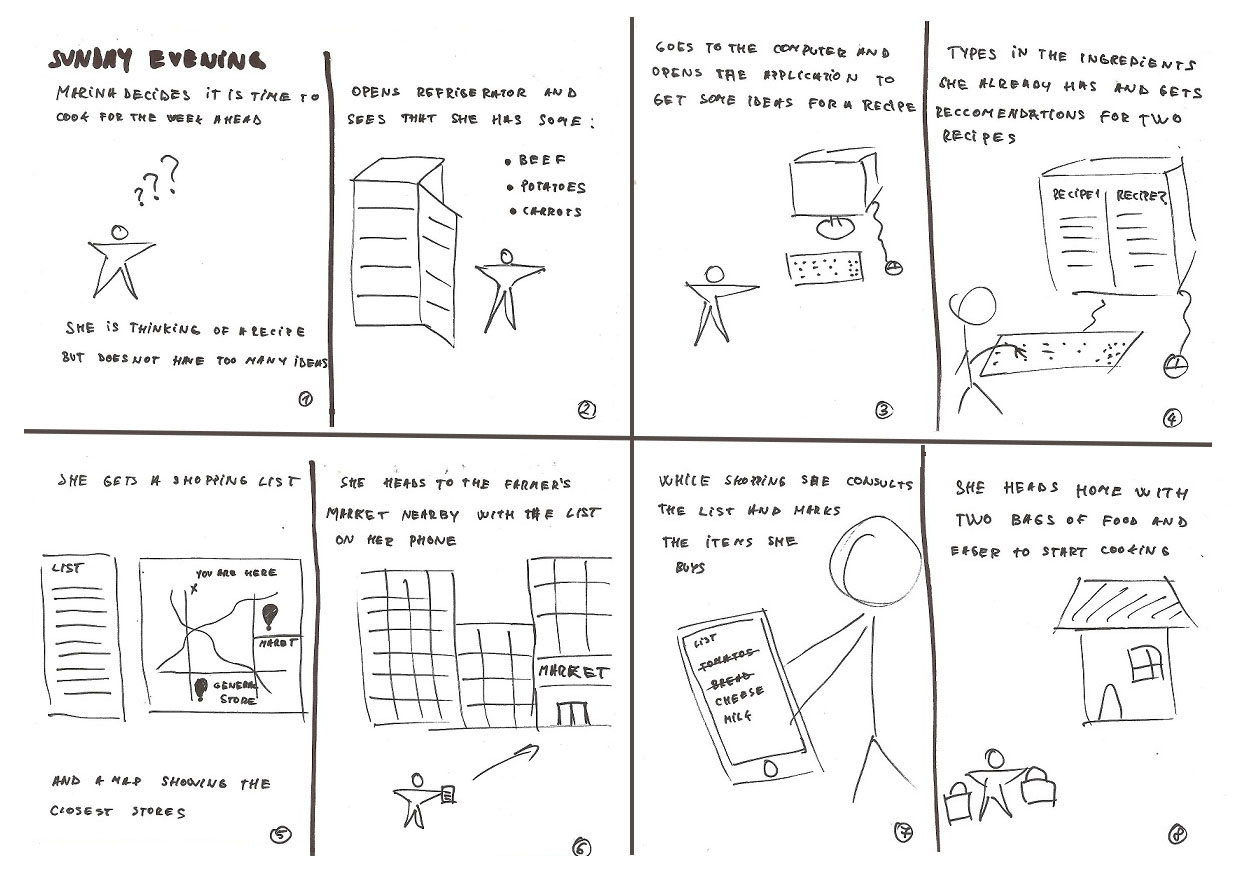 SUNDAY EVENING
MARINA DECIDES IT IS TIME TO
COOK FOR THE WEEK AHEAD
???
SHE IS THINKING OF A RECIPE
BUT DOES NOT HAVE TOO MANY IDEAS
1
OPENS REFRIGERATOR AND
SEES THAT SHE HAS SOME:
• BEEF
• POTATOES
• CARROTS
2
GOES TO THE COMPUTER AND
OPENS THE APPLICATION TO
GET SOME IDEAS FOR A RECIPE
3
TYPES IN THE INGREDIENTS
SHE ALREADY HAS AND GETS
RECCOMENDATIONS FOR TWO
RECIPES
RECIPE1 RECIPE2
4
SHE GETS A SHOPPING LIST
LIST
YOU ARE HERE
X
MARET
GENERAL
STORE
AND A MAP SHOWING THE
CLOSEST STORES
5
SHE HEADS TO THE FARMER'S
MARKET NEARBY WITH THE LIST
ON HER PHONE
MARKET
6
WHILE SHOPPING SHE CONSULTS
THE LIST AND MARKS
THE ITEMS SHE
BUYS
LIST
TOMATOS
BREAD
CHEESE
MILK
7
SHE HEADS HOME WITH
TWO BAGS OF FOOD AND
EAGER TO START COOKING
8